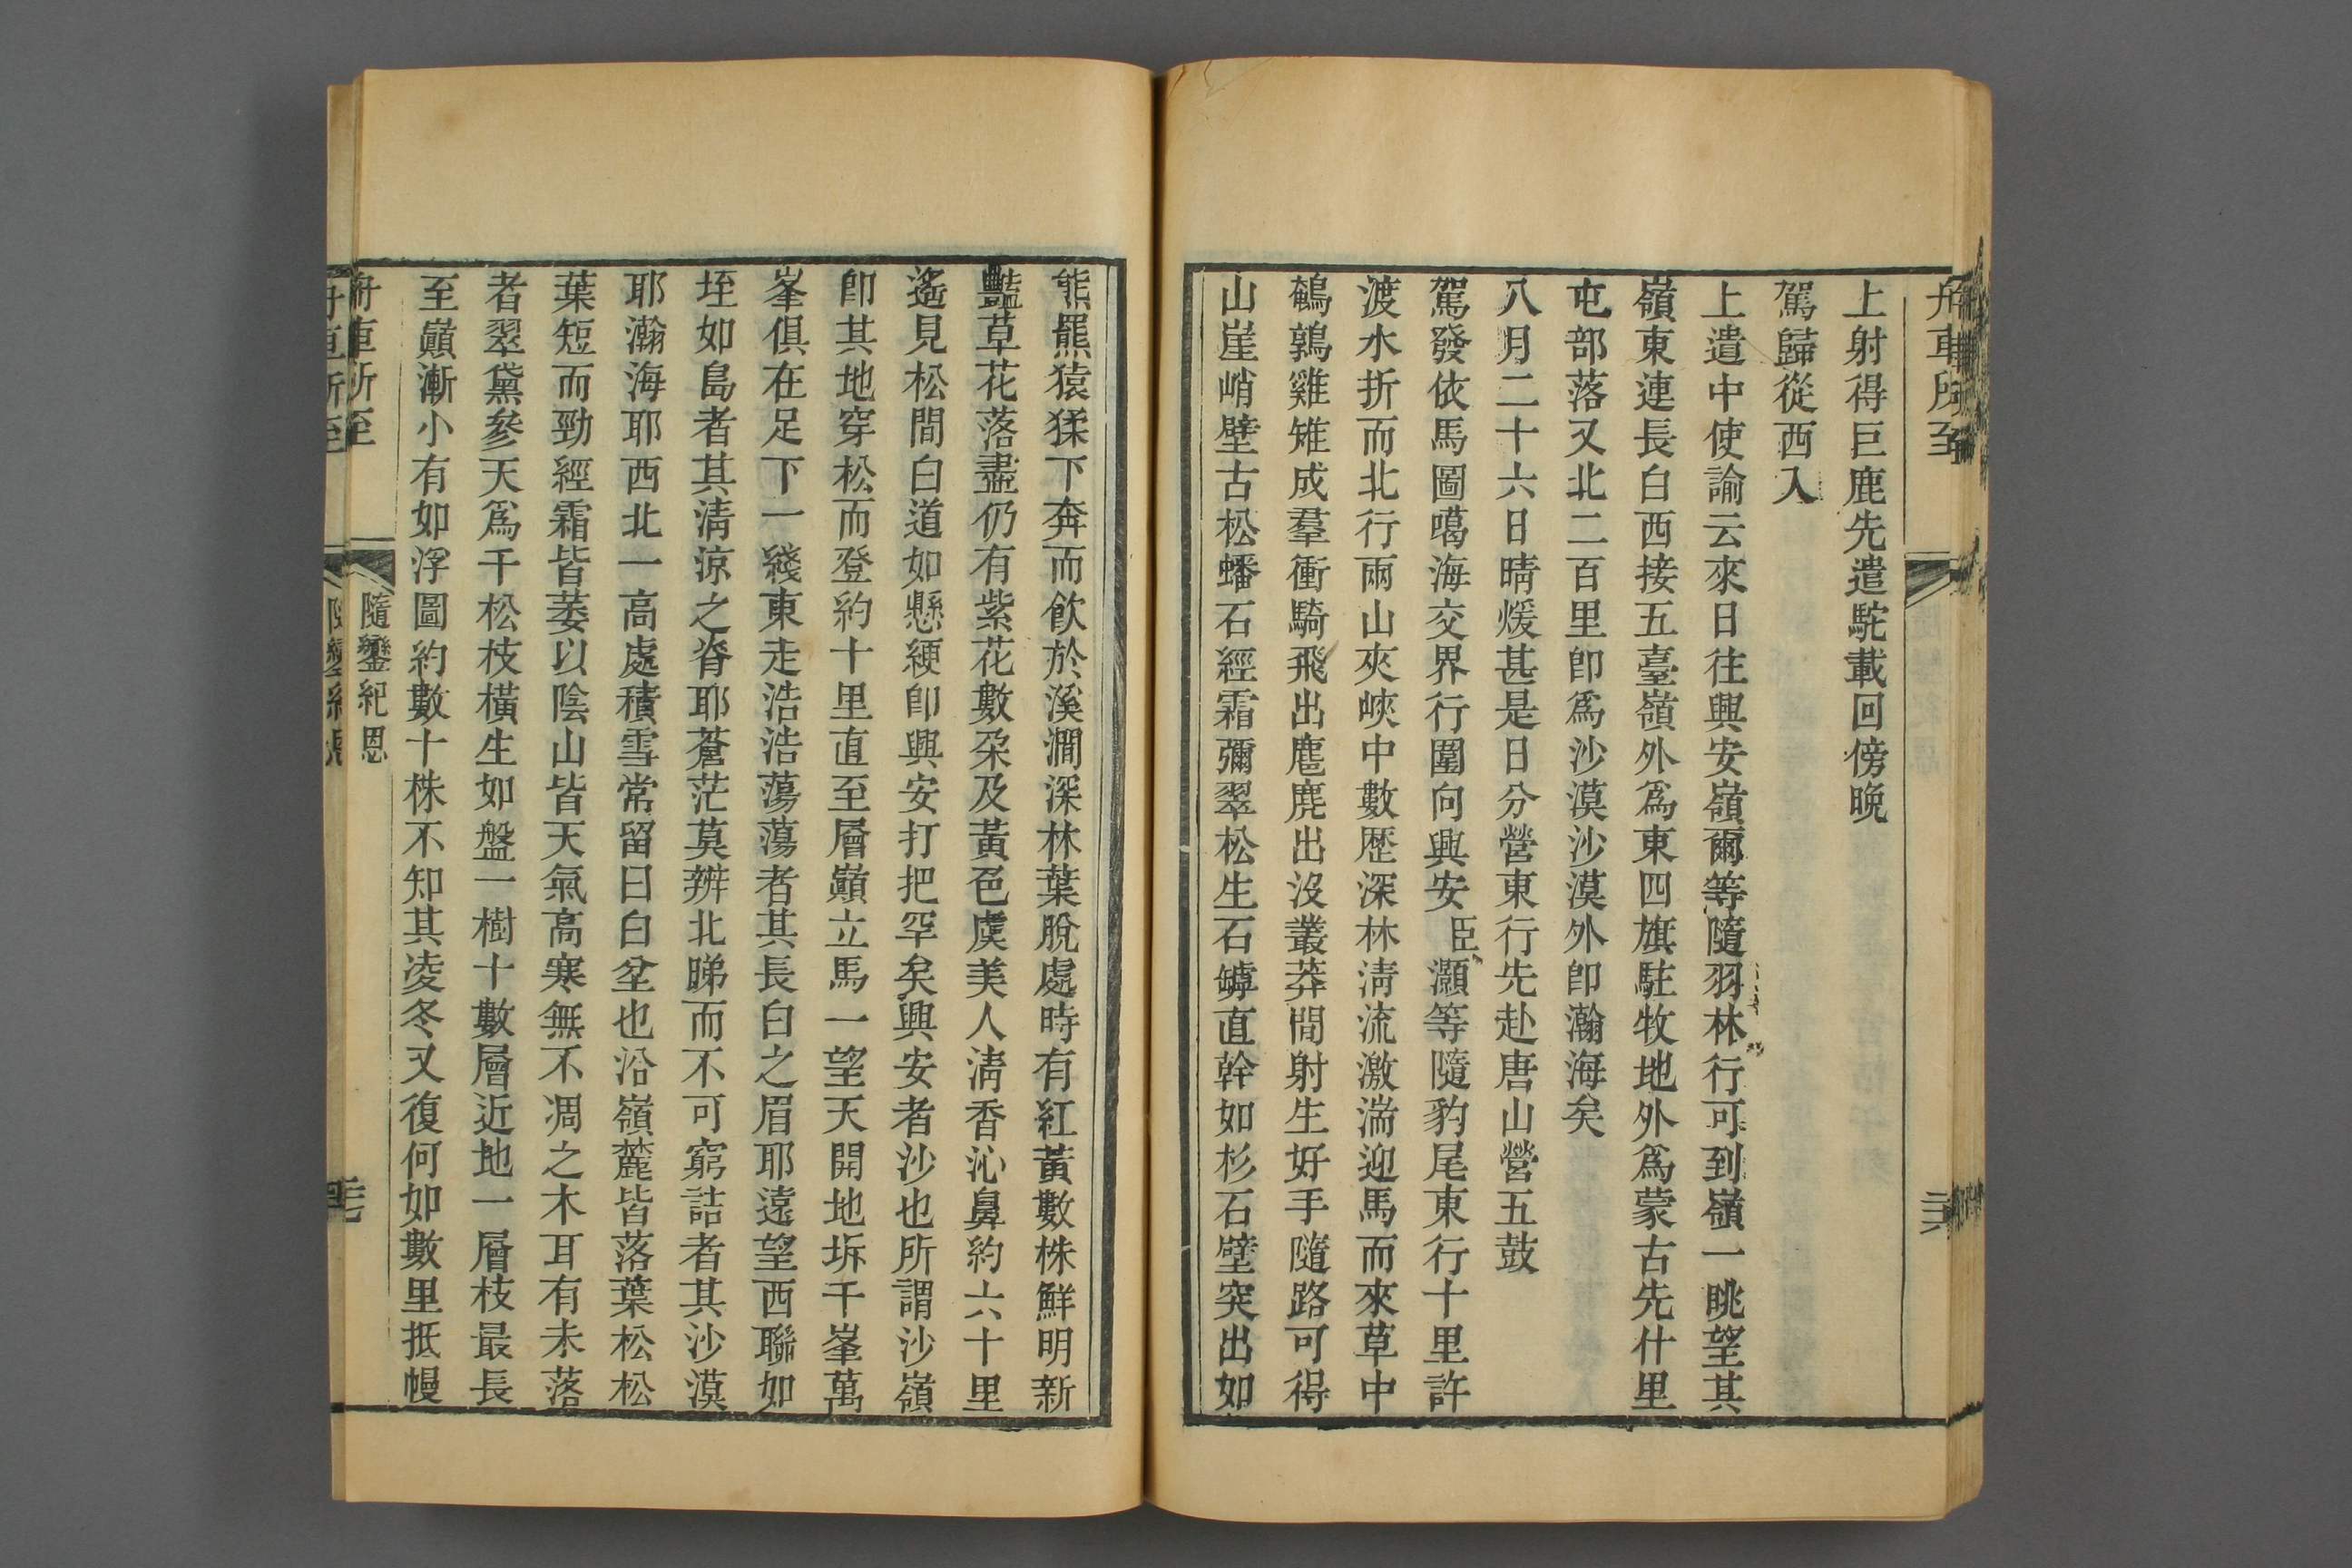 舟車所至
上射得巨鹿先遣駝載回傍晩
駕歸從西入
上遣中使諭云來日往興安嶺爾等隨羽林行可到嶺一眺望其
嶺東連長白西接五臺嶺外爲東四旗駐牧地外爲蒙古先什里
屯部落又北二百里卽爲沙漠沙漠外卽瀚海矣
八月二十六日晴煖甚是日分營東行先赴唐山營五鼓
駕發依馬圖噶海交界行圍向興安臣灝等隨豹尾東行十里許
渡水折而北行兩山夾峽中數歷深林淸流激湍迎馬而來草中
鵪鶉雞雉成羣衝騎飛出麅麂出沒叢莽間射生好手隨路可得
山崖峭壁古松蟠石經霜彌翠松生石罅直幹如杉石壁突出如
熊羆猿猱下奔而飮於溪澗深林葉脫處時有紅黃數株鮮明新
豔草花落盡仍有紫花數朶及黃色虞美人淸香沁鼻約六十里
遙見松間白道如懸綆卽興安打把罕矣興安者沙也所謂沙嶺
卽其地穿松而登約十里直至層巓立馬一望天開地坼千峯萬
峯俱在足下一綫東走浩浩蕩蕩者其長白之眉耶遠望西聯如
垤如島者其淸涼之脊耶蒼茫莫辨北睇而不可窮詰者其沙漠
耶瀚海耶西北一高處積雪常留曰白坌也沿嶺麓皆落葉松松
葉短而勁經霜皆萎以陰山皆天氣高寒無不凋之木耳有未落
者翠黛參天爲千松枝橫生如盤一樹十數層近地一層枝最長
至巓漸小有如浮圖約數十株不知其凌冬又復何如數里抵幔
舟車所至
隨鑾紀恩